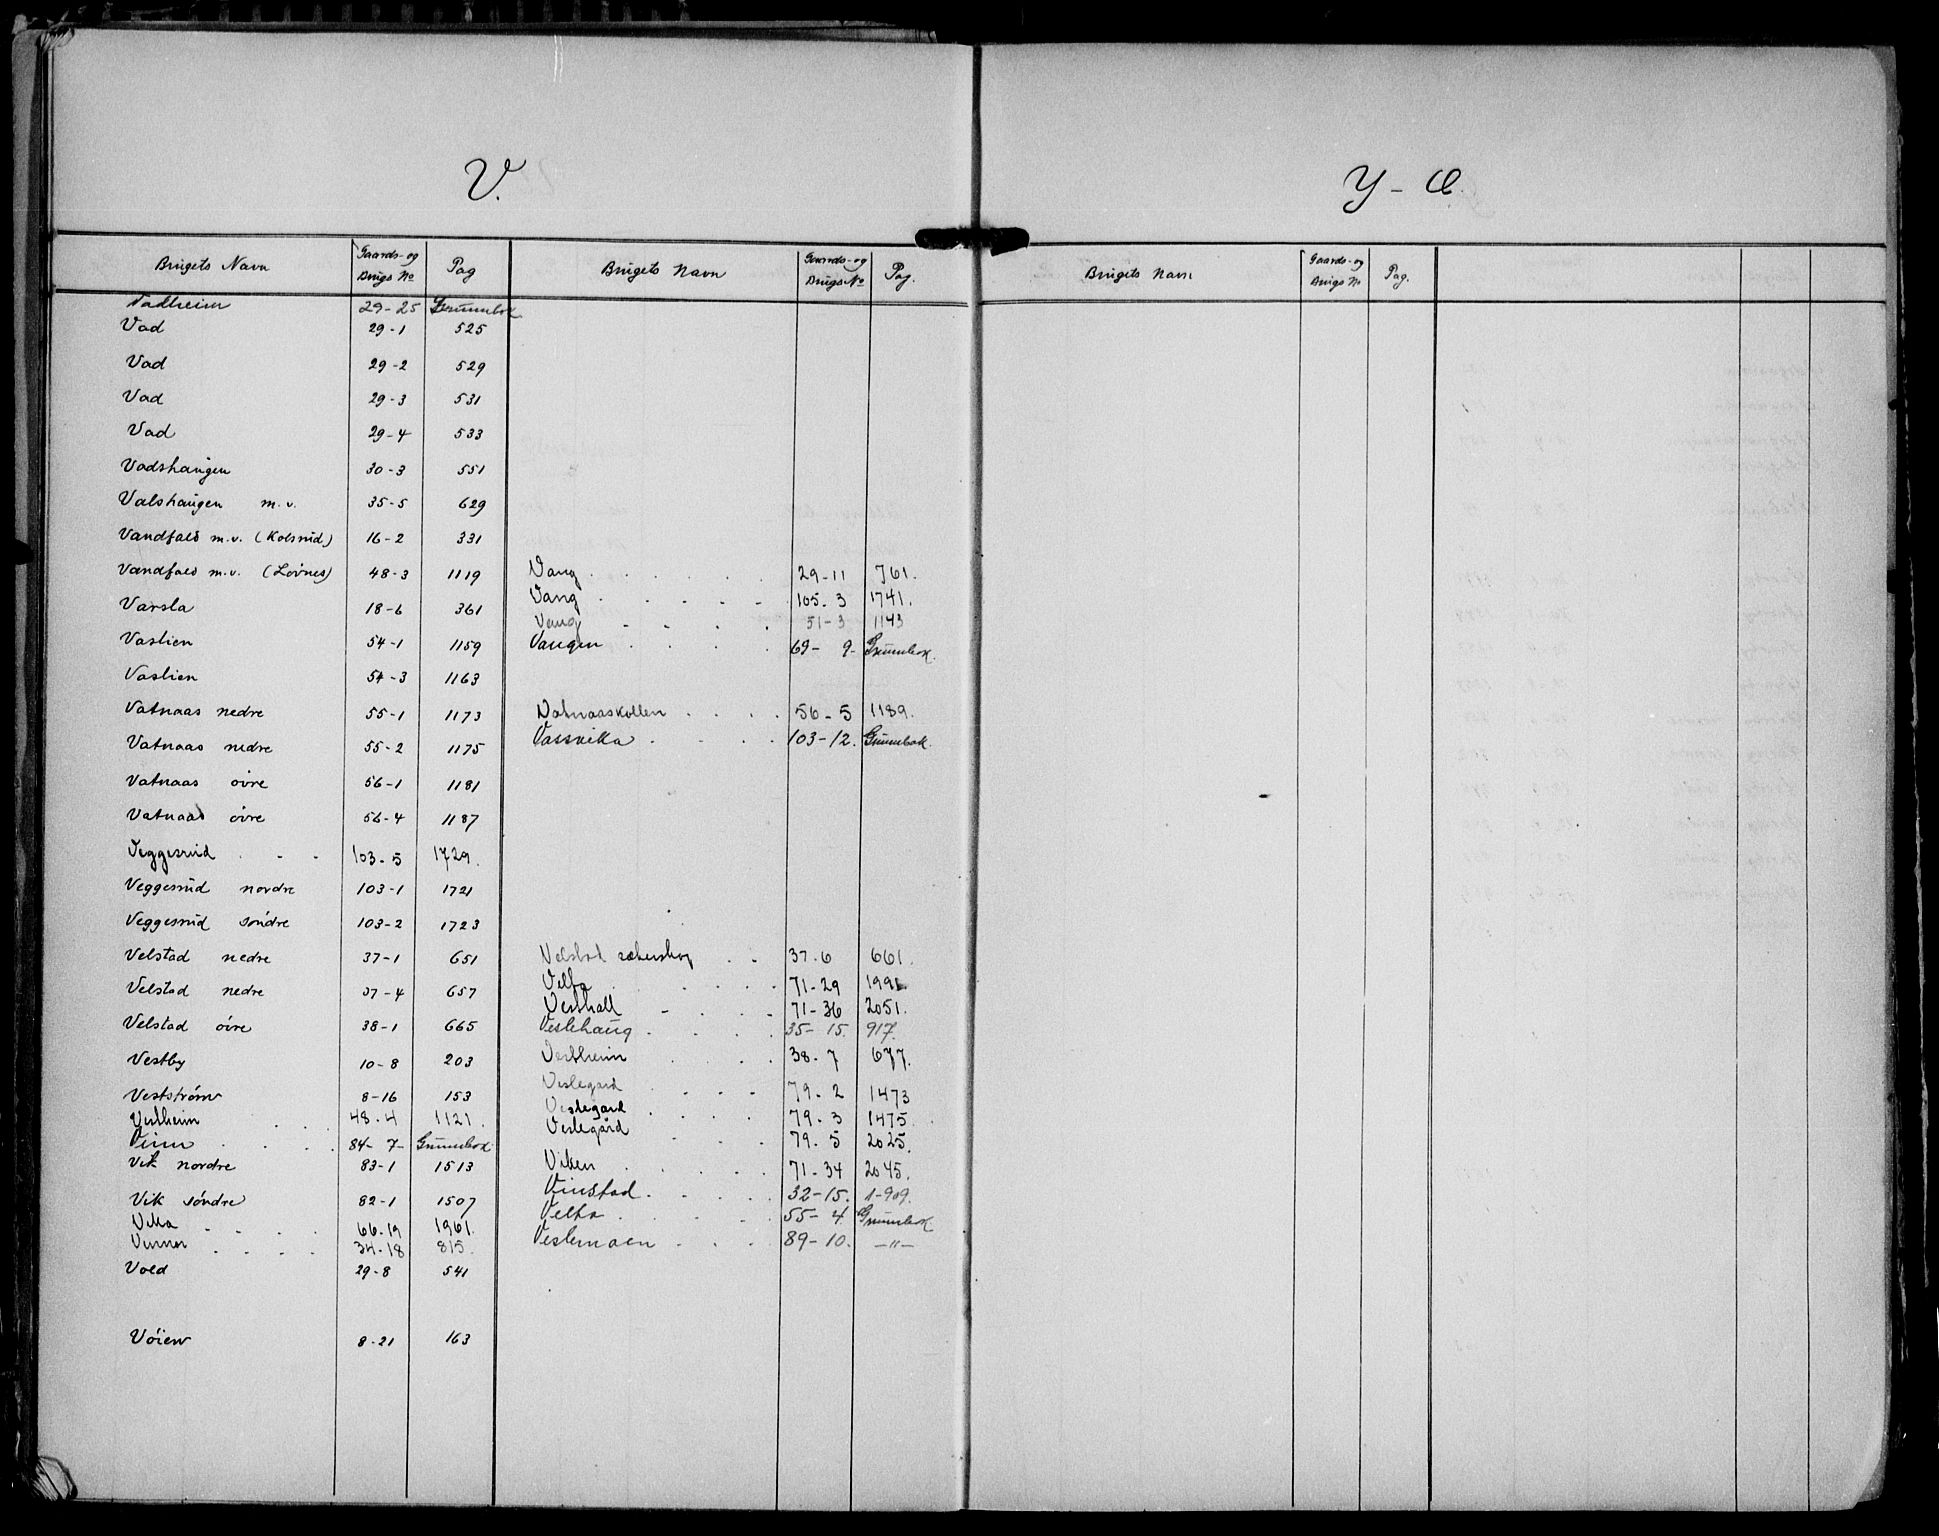 V.
Brugets Navn	Gaards- og Brugs No	Pag
Vadheim	29-25	Grunnbok
Vad	29-1	525
Vad	29-2	529
Vad	29-3	531
Vad	29-4	533
Vadshaugen	30-3	551
Valshaugen m.v.	35-5	629
Vandfald m.v. (Kolsrud)	16-2	331
Vandfald m.v. (Lövnes)	48-3	1119
Varsla	18-6	361
Vaslien	54-1	1159
Vaslien	54-3	1163
Vatnaas nedre	55-1	1173
Vatnaas nedre	55-2	1175
Vatnaas övre	56-1	1181
Vatnaas övre	56-4	1187
Veggesrud . - -	103-5	1729.
Veggesrud nordre	103-1	1721
Veggesrud söndre	103-2	1723
Velstad nedre	37-1	651
Velstad nedre	37-4	657
Velstad övre	38-1	665
Vestby	10-8	203
Veststrøm	8-16	153
Vestheim . .	48-4	1121.
84-7-	Grunnbok
Vik nordre	83-1	1513
Vik söndre	82-1	1507
Villa - - . .	66-19	1961.
. . . .	34-18	815.
Vold	29-8	541
Vöien	8-21	163
Brugets Navn	Gaards- og Brugs No	Pag.
Vang . . . . .	29-11	761.
Vang . - . . -	105-3	1741.
Vang - - . .	51-3	1143
Vangen . . . .	69- 9-	Grunnbok.
Vatnaaskollen . . . .	56-5	1189.
Vassvika . . . .	103-12.	Grunnbok.
Velstad . .	37-6	661.
71-29	1991
Vesthall - . . .	71-36	2051.
Veslehaug . . . .	35-15.	917.
Vestheim . . . .	38-7	677.
Veslegård . - - -	79-2	1473
Veslegård . . . .	79-3	1475.
Veslegård . . . .	79-5	2025.
Viken . . . . .	71-34	2045.
Vinstad . . . . .	32-15.	1-909.
55-4	Grunnbok
Veslemoen . . . .	89-10.	-"-
Y - Œ.
Brugets Navn	Gaards- og Brugs No	Pag.